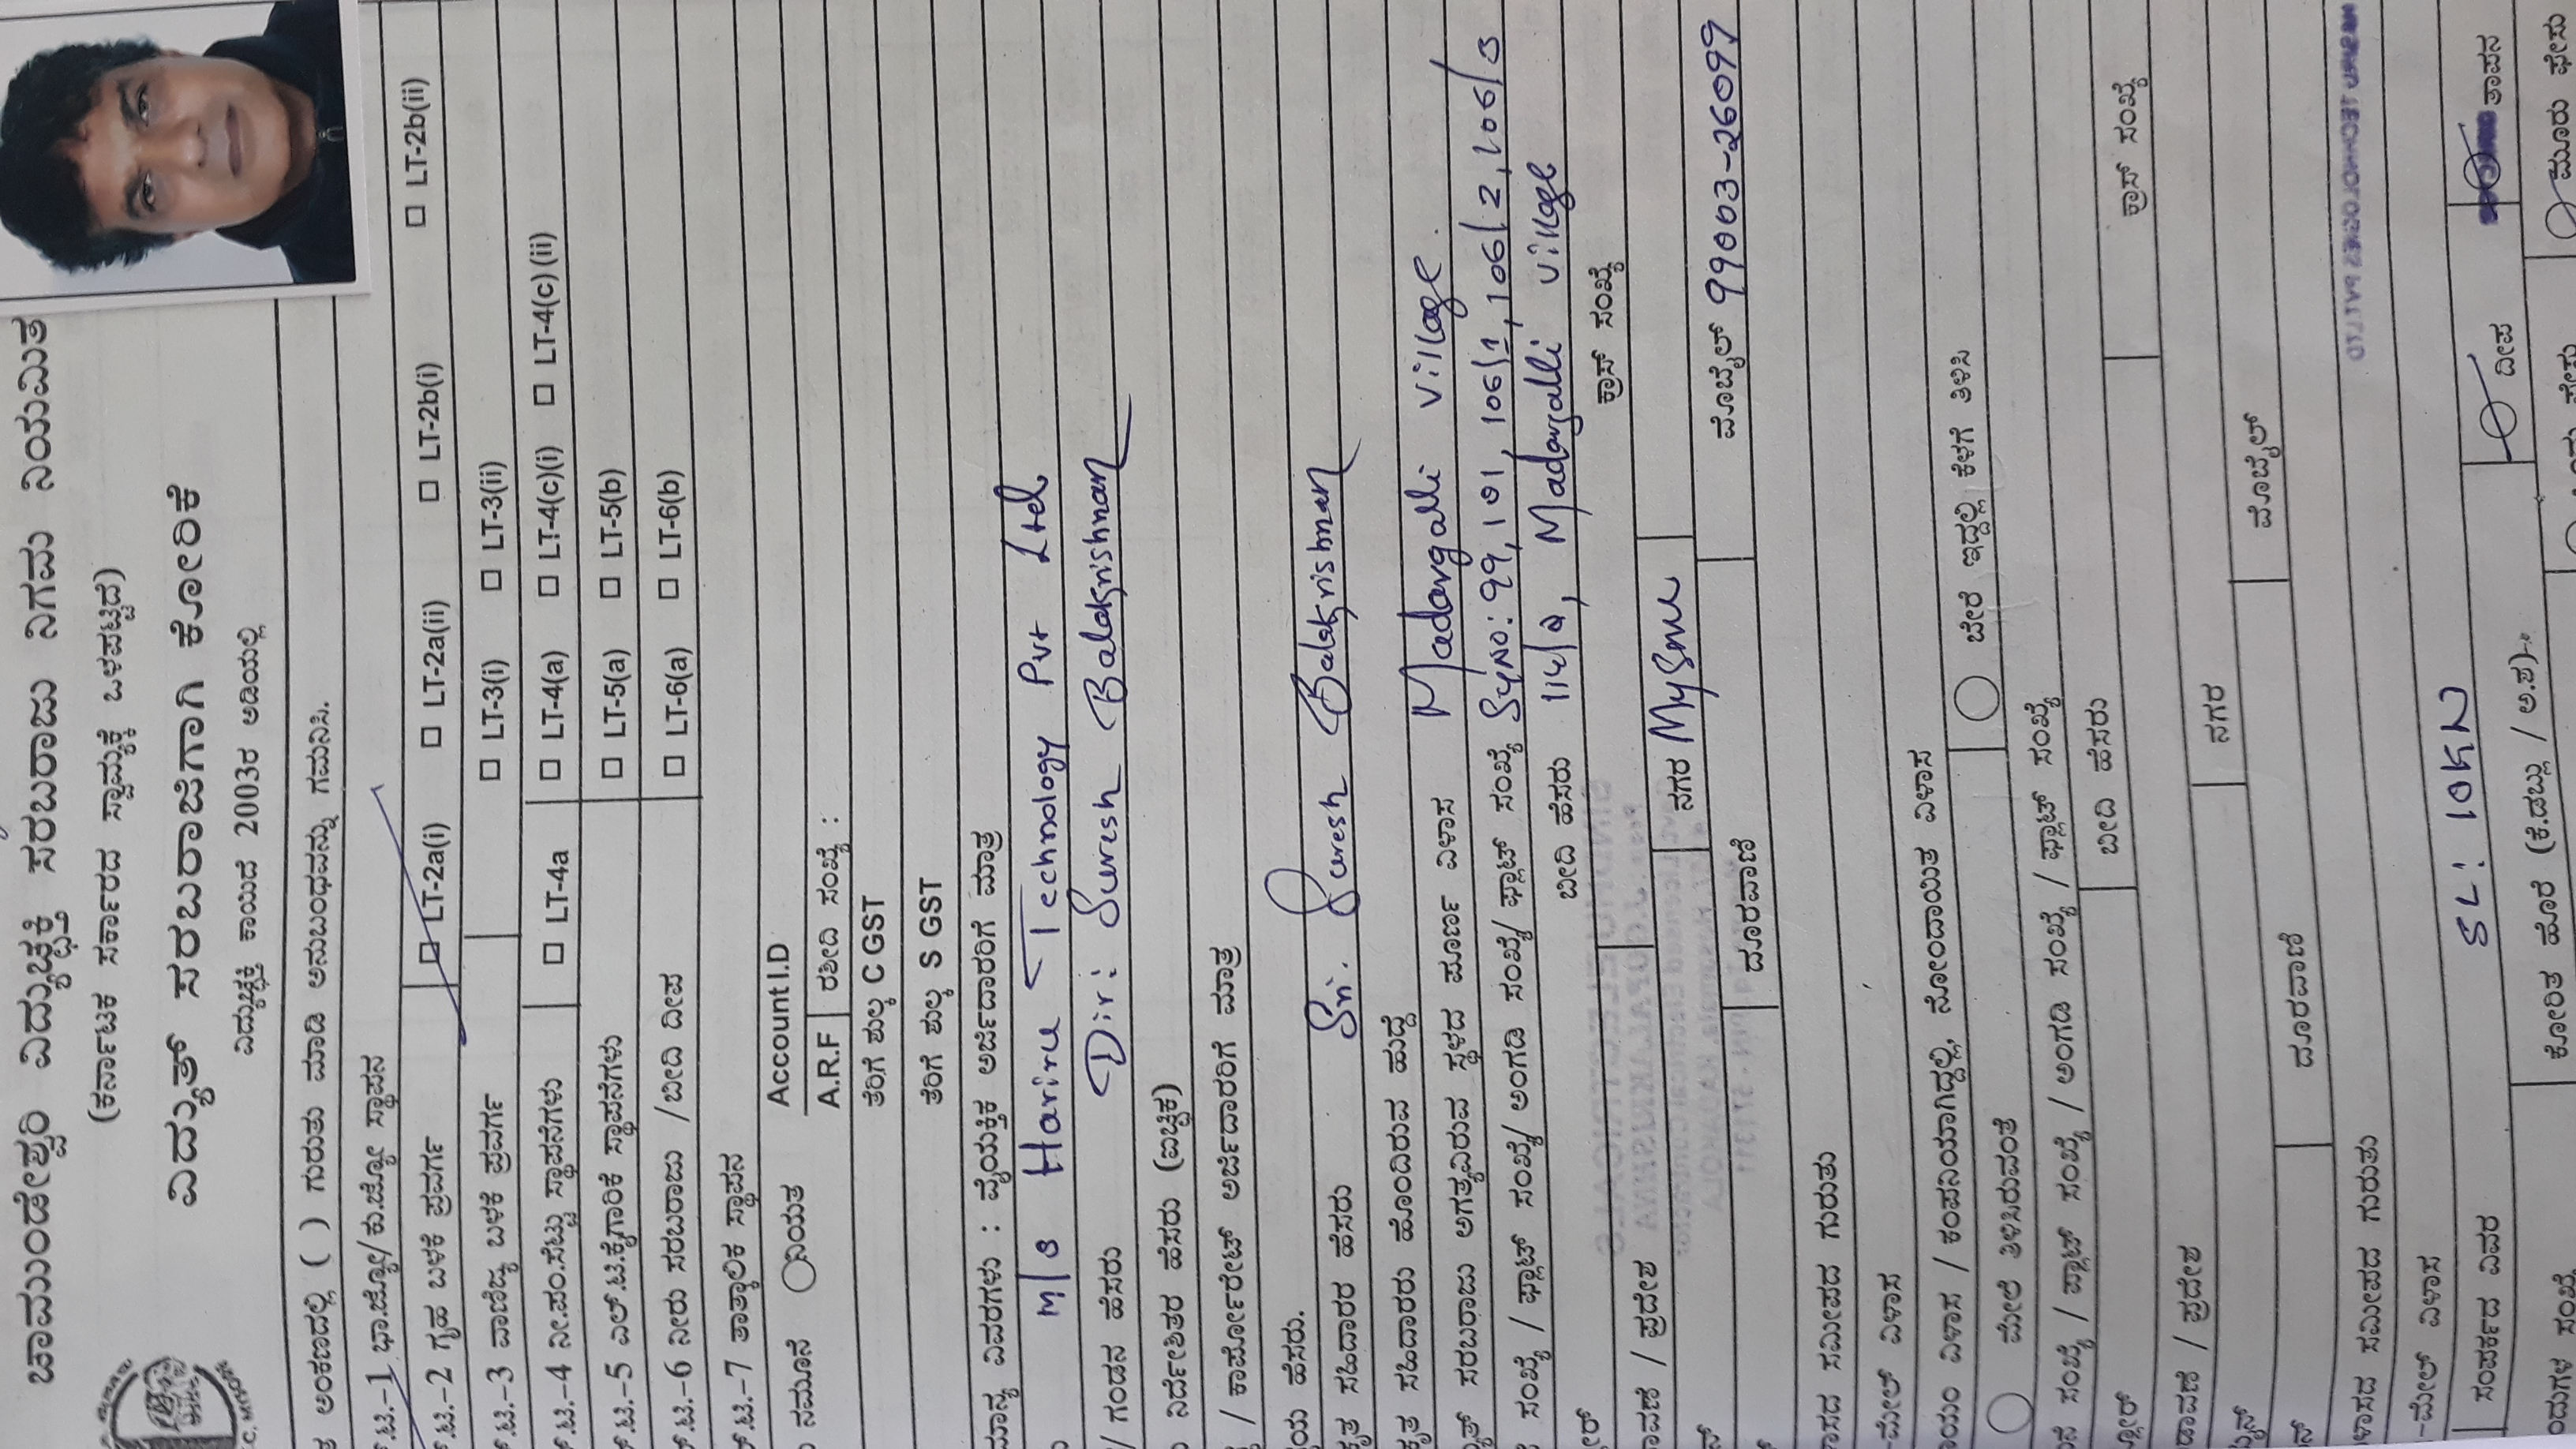 ಚಾಮುಂಡೇಶ್ವರಿ ವಿದ್ಯುಚ್ಛಕ್ತಿ ಸರಬರಾಜು ನಿಗಮ ನಿಯಮಿತ
(ಕರ್ನಾಟಕ ಸರ್ಕಾರದ ಸ್ವಾಮ್ಯಕ್ಕೆ ಒಳಪಟ್ಟಿದೆ)
ವಿದ್ಯುತ್ ಸರಬರಾಜಿಗಾಗಿ ಕೋರಿಕೆ
ವಿದ್ಯುಚ್ಛಕ್ತಿ ಕಾಯಿದೆ 2003ರ ಅಡಿಯಲ್ಲಿ
ಅಂಕಣದಲ್ಲಿ ( ) ಗುರುತು ಮಾಡಿ ಅನುಬಂಧವನ್ನು ಗಮನಿಸಿ.
.ಟಿ.-1 ಭಾ.ಜ್ಯೋ/ಕು.ಜ್ಯೋ ಸ್ಥಾಪನ
.ಟಿ.-2 ಗೃಹ ಬಳಕೆ ಪ್ರವರ್ಗ LT-2a(i) LT-2a(ii) LT-2b(i) LT-2b(ii)
.ಟಿ.-3 ವಾಣಿಜ್ಯ ಬಳಕೆ ಪ್ರವರ್ಗ LT-3(i) LT-3(ii)
.ಟಿ.-4 ನೀ.ಪಂ.ಸೆಟ್ಟು ಸ್ಥಾಪನೆಗಳು LT-4a LT-4(a) LT-4(c)(i) LT-4(c)(ii)
.ಟಿ.-5 ಎಲ್.ಟಿ.ಕೈಗಾರಿಕೆ ಸ್ಥಾಪನೆಗಳು LT-5(a) LT-5(b)
.ಟಿ.-6 ನೀರು ಸರಬರಾಜು /ಬೀದಿ ದೀಪ LT-6(a) LT-6(b)
.ಟಿ.-7 ತಾತ್ಕಾಲಿಕ ಸ್ಥಾಪನ
ನಮೂನೆ ನಿಯಮಿತ Account I.D
A.R.F ರಶೀದಿ ಸಂಖ್ಯೆ :
ತೆರಿಗೆ ಶುಲ್ಕ C GST
ತೆರಿಗೆ ಶುಲ್ಕ S GST
ವಿವರಗಳು : ವೈಯಕ್ತಿಕ ಅರ್ಜಿದಾರರಿಗೆ ಮಾತ್ರ
M/s Hariru Technology Pvt Ltd
/ ಗಂಡನ ಹೆಸರು Dir: Suresh Balakrishnan
ನಿರ್ದೇಶಿತರ ಹೆಸರು (ಐಚ್ಛಿಕ)
/ ಕಾರ್ಪೊರೇಟ್ ಅರ್ಜಿದಾರರಿಗೆ ಮಾತ್ರ
ಹೆಸರು.
ಸಹಿದಾರರ ಹೆಸರು Sri. Suresh Balakrishnan
ಸಹಿದಾರರು ಹೊಂದಿರುವ ಹುದ್ದೆ
ಸರಬರಾಜು ಅಗತ್ಯವಿರುವ ಸ್ಥಳದ ಪೂರ್ಣ ವಿಳಾಸ Madargalli village.
ಸಂಖ್ಯೆ / ಫ್ಲಾಟ್ ಸಂಖ್ಯೆ/ ಅಂಗಡಿ ಸಂಖ್ಯೆ/ ಫ್ಲಾಟ್ ಸಂಖ್ಯೆ SyNo: 99, 101, 106/1, 106/2, 106/3
ಬೀದಿ ಹೆಸರು Madargalli village
ಕ್ರಾಸ್ ಸಂಖ್ಯೆ
/ ಪ್ರದೇಶ ನಗರ Mysuru
ದೂರವಾಣಿ ಮೊಬೈಲ್ 99003-26099
ಸಮೀಪದ ಗುರುತು
-ಮೇಲ್ ವಿಳಾಸ
ವಿಳಾಸ / ಕಂಪನಿಯಾಗಿದ್ದಲ್ಲಿ, ನೋಂದಾಯಿತ ವಿಳಾಸ
ಮೇಲೆ ತಿಳಿಸಿರುವಂತೆ ಬೇರೆ ಇದ್ದಲ್ಲಿ ಕೆಳಗೆ ತಿಳಿಸಿ
ಸಂಖ್ಯೆ / ಫ್ಲಾಟ್ ಸಂಖ್ಯೆ / ಅಂಗಡಿ ಸಂಖ್ಯೆ / ಫ್ಲಾಟ್ ಸಂಖ್ಯೆ
ಬೀದಿ ಹೆಸರು ಕ್ರಾಸ್ ಸಂಖ್ಯೆ
/ ಪ್ರದೇಶ ನಗರ
ದೂರವಾಣಿ ಮೊಬೈಲ್
ಸಮೀಪದ ಗುರುತು
-ಮೇಲ್ ವಿಳಾಸ
ಸಂಪರ್ಕದ ವಿವರ SL: 10KW ದೀಪ ತಾಪನ
ಸಂಖ್ಯೆ ಕೋರಿತ ಹೊರೆ (ಕೆ.ಡಬ್ಲು / ಅ.ಶ) ಮೂರು ಫೇಸು